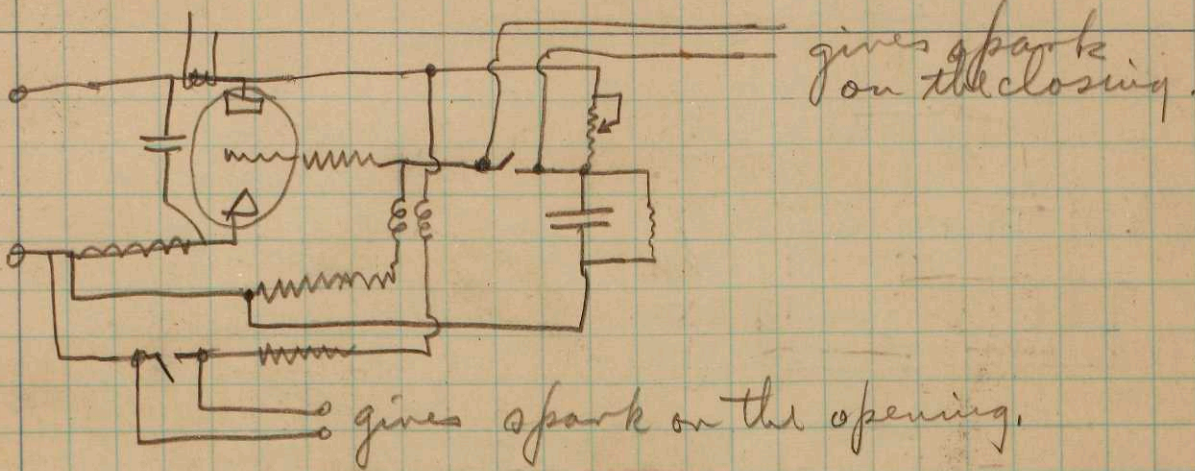 gives spark
on the closing.
gives spark on the opening.